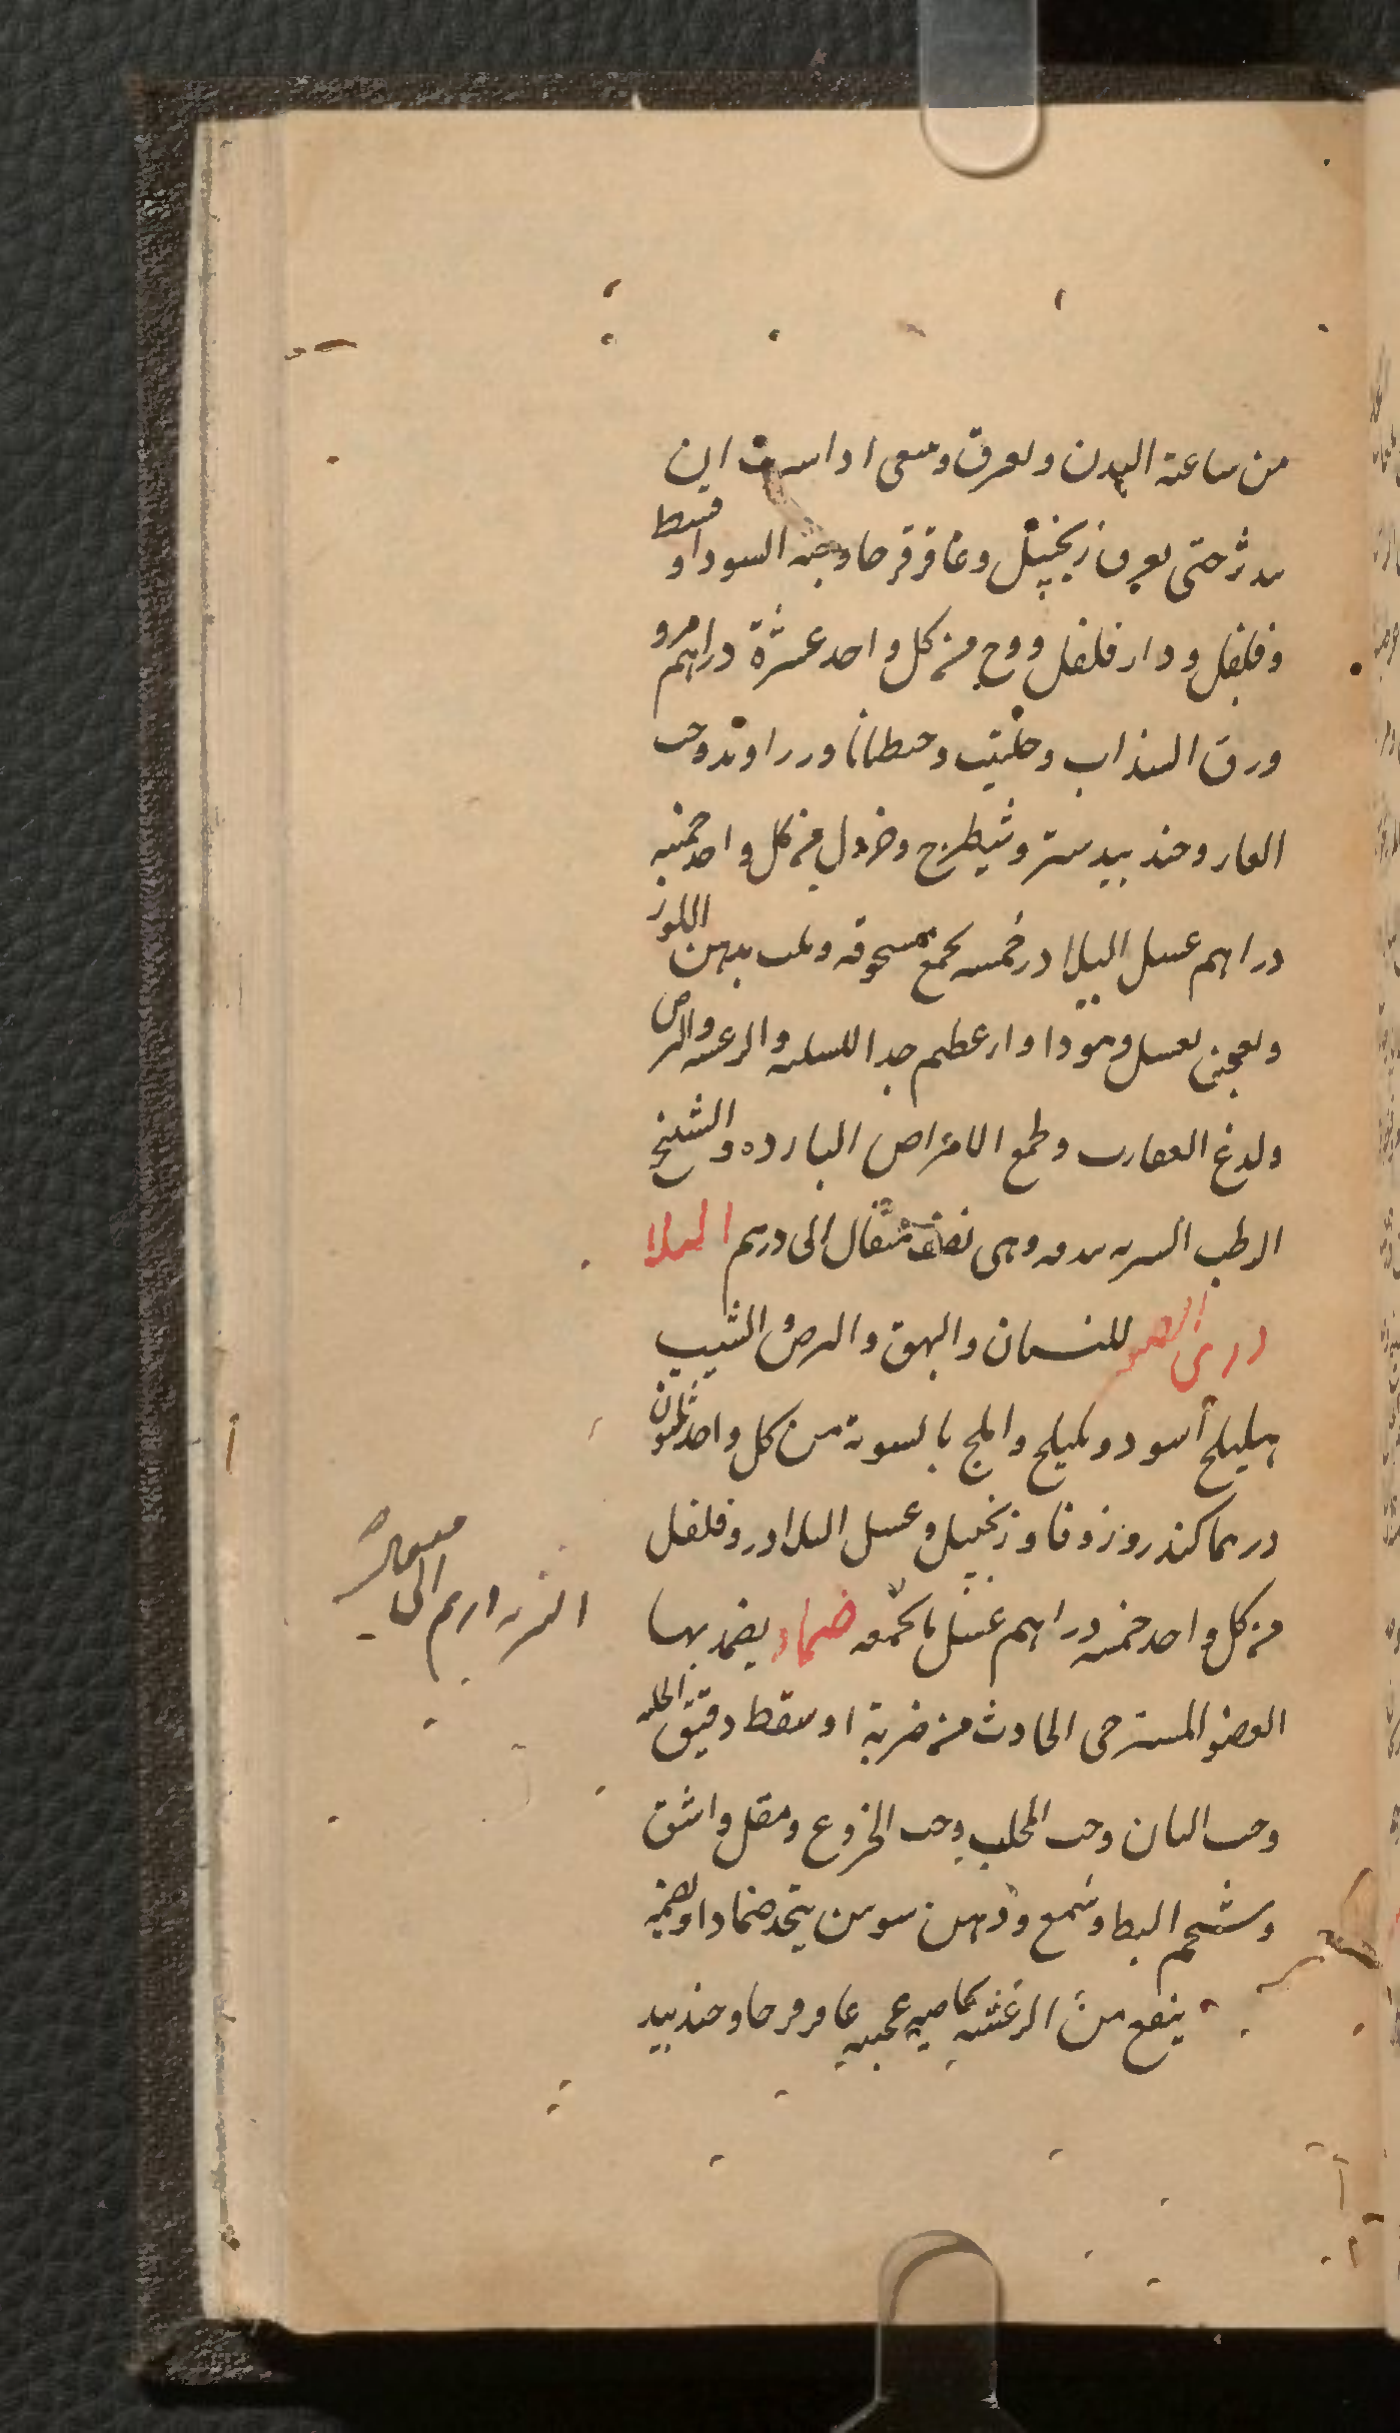 من ساعته البدن ولعرق وسعى اذا اسرف ان
يدثر حتى يعرق زنجبيل وعاقرقرحا وحبه السودا وقسط
وفلفل ودار فلفل ووج من كل واحد عشرة دراهم و
ورق السذاب وحلتيت وحنطيانا وزراوند وحب
الغار وجندبيدستر وشيطرج وخردل من كل واحد خمسه
دراهم عسل البلادر خمسه يجمع مسحوقه ويلت بدهن اللوز
ويعجن بعسل وهو دوا عظيم جدا والرعشه والبرص
ولدغ العقارب وجميع الامراض البارده والتشنج
الرطب الشربه منه وهى نصف مثقال الى درهم البلا
درى للنسيان والبهق والبرص الشيب
هليلج اسود وبليلج واملج بالسوية من كل واحد ثلثون
درهما كندر وزوفا وزنجبيل وعسل البلادر وفلفل
من كل واحد خمسه دراهم عسل ما يجمعه ضماد يضمد بها
العضو المسترخى الحادث من ضربة او سقط دقيق الحلبه
وحب البان وحب المحلب وحب الخروع ومقل واشق
وشحم البط وشمع ودهن سوسن يتخذ ضمادا
ينفع من الرعشه بخاصيه عجيبه عاقرقرحا وجندبيد
الشربه درهم الى مثقال